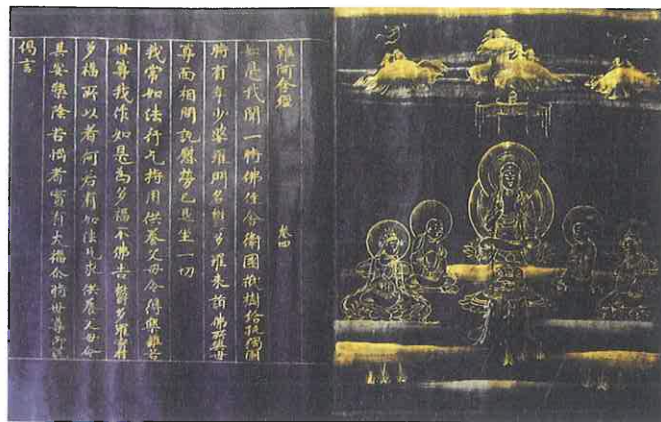 雜阿含經 卷四
如是我聞一時佛住舍衛國祇樹給孤獨園
時有年少婆羅門名欝多羅来詣佛所與世
尊面相問訊慰勞已退坐一切
我常如法行乞持用供養父母令得樂離苦
世尊我作如是為多福不佛告欝多羅實有
多福所以者何若有如法乞求供養父母令
其安樂除苦惱者實有大福尒時世尊即說
偈言